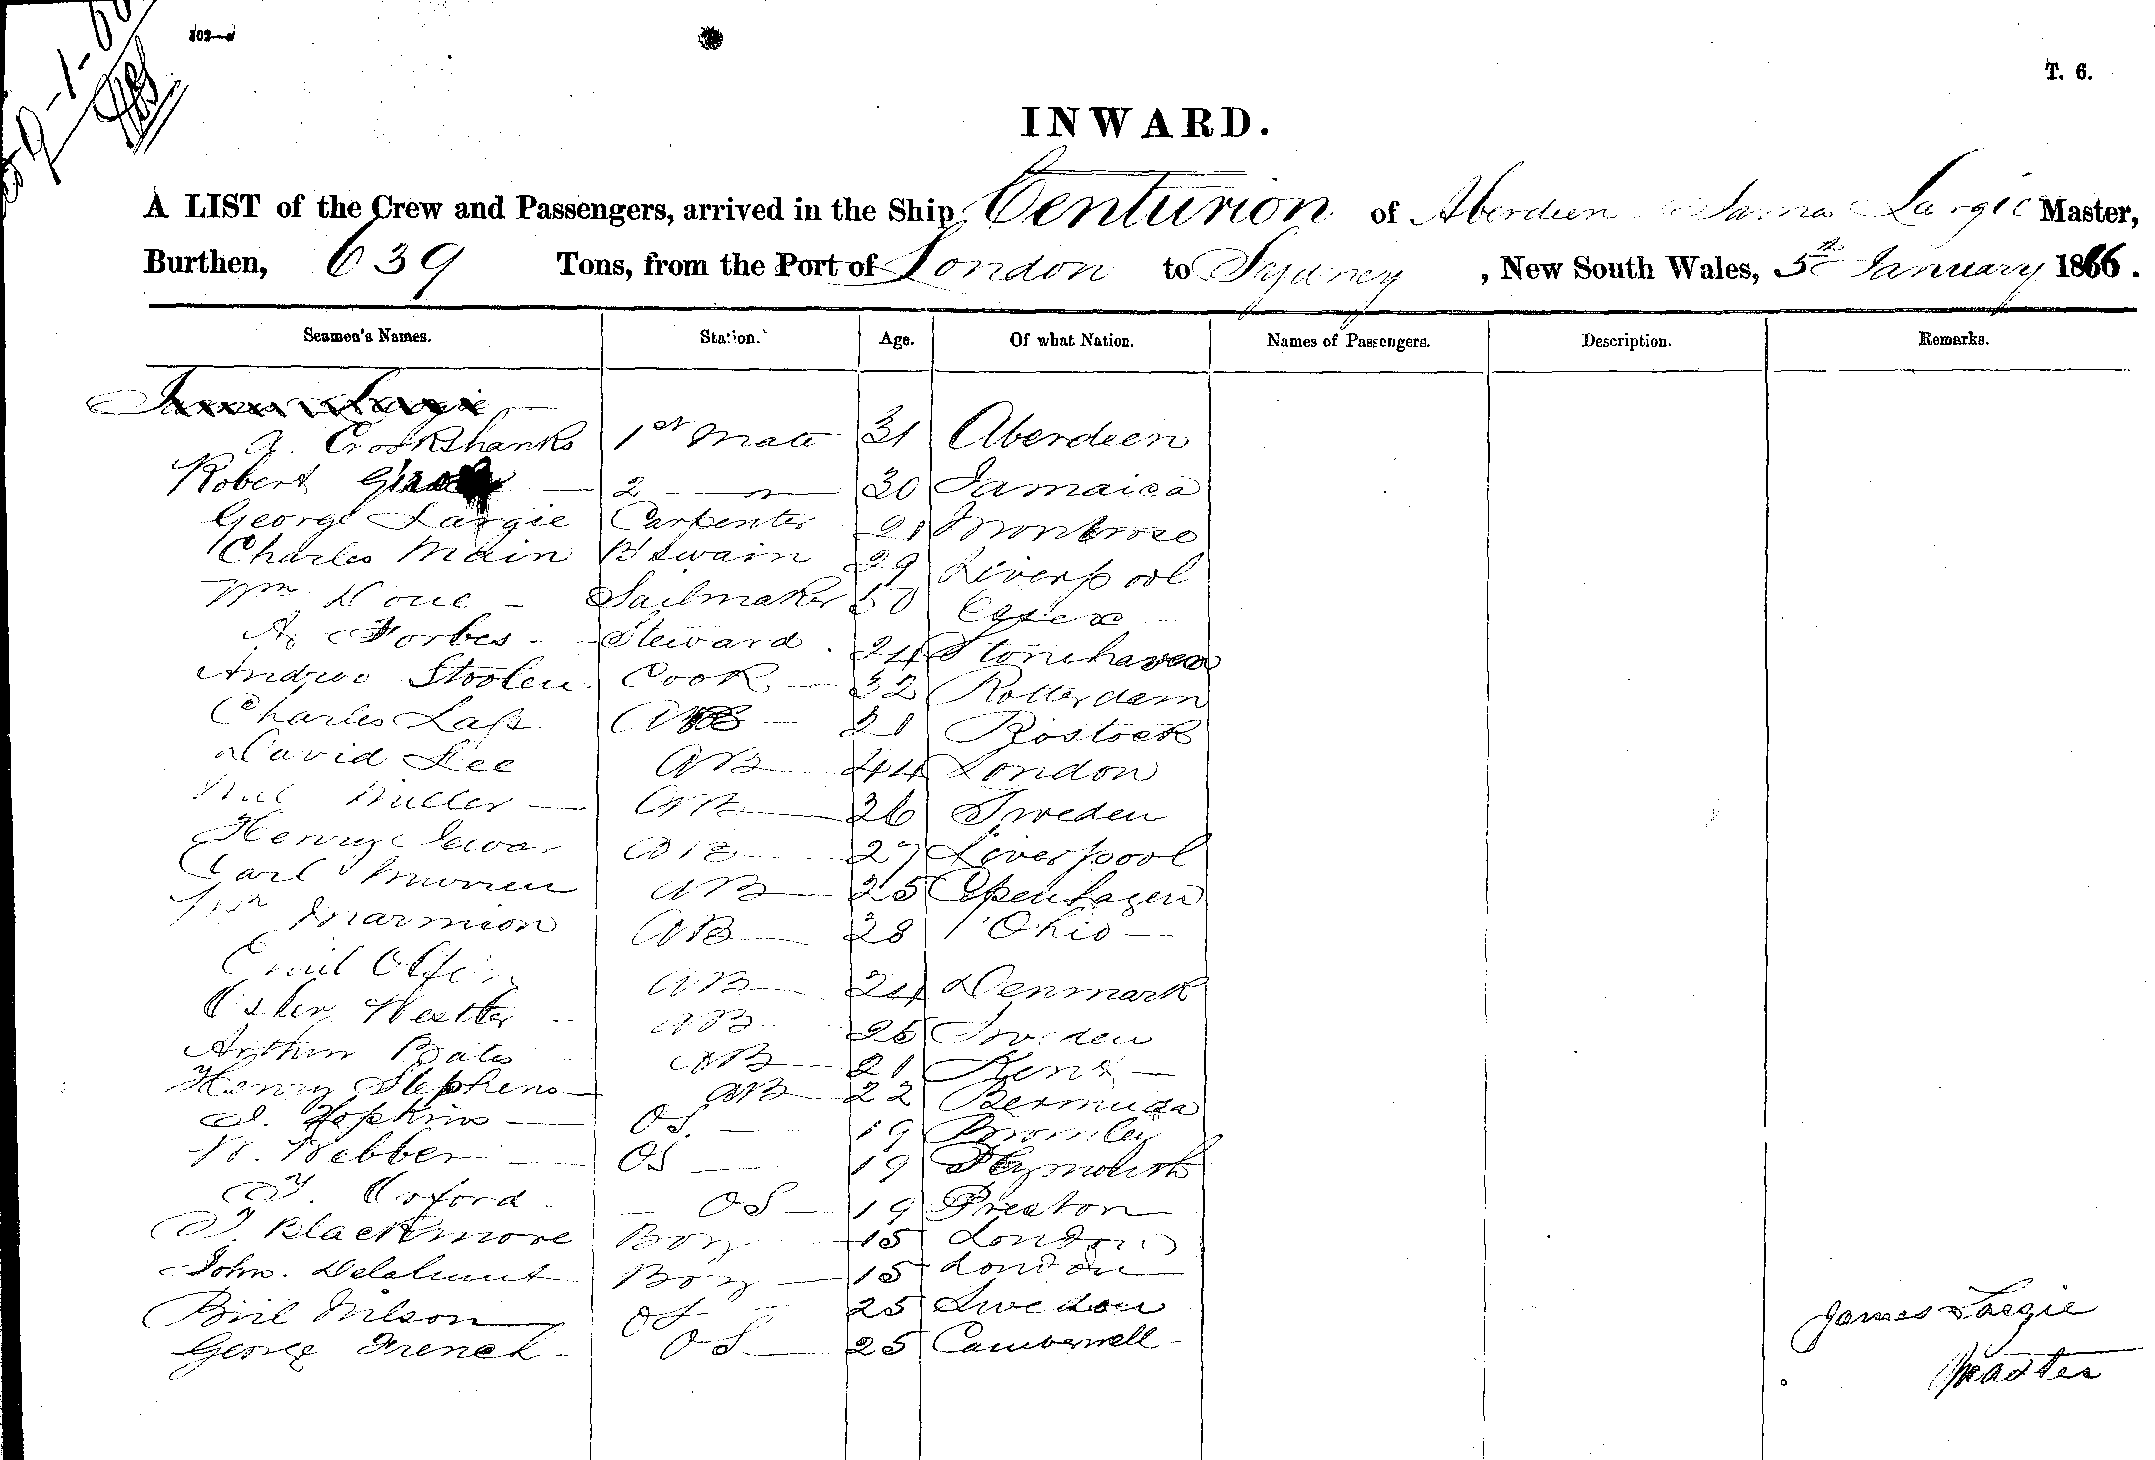 T. 6.
INWARD.
A LIST of the Crew and Passengers, arrived in the Ship Centurion of Aberdeen James Largie Master,
Burthen, 639 Tons, from the Port of London to Sydney, New South Wales, 5th January 1866.
Seamen's Names. Station. Age. Of what Nation. Names of Passengers. Description. Remarks.
James Largie
A. Crookshanks 1st Mate 31 Aberdeen
Robert 2 — 30 Jamaica
George Largie Carpenter 21 Montrose
Charles Main Bswain 29 Liverpool
Wm Sailmaker 50 Essex
A. Forbes Steward 24 Stonehaven
Andrew Stoolen Cook 32 Rotterdam
Charles Lass AB 21 Rostock
David Lee AB 44 London
Miller AB 26 Sweden
Henry AB 27 Liverpool
Carl AB 25 Copenhagen
Wm Marmion AB 28 Ohio
Emil Olsen AB 24 Denmark
AB 26 Sweden
Arthur Bates AB 21 Kent
Henry Stephens AB 22 Bermuda
Hopkins OS 19 Bromley
W. Webber OS 19 Plymouth
Oxford OS 19 Preston
T. Blackmore Boy 15 London
John Delahunt Boy 15 London
Nilson OS 25 Sweden
George French OS 25 Camberwell
James Largie
Master